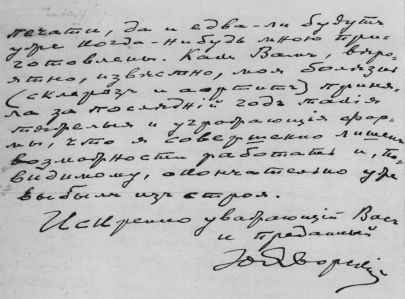 печати, да и едва-ли будутъ
уже когда-нибудь мною при-
готовлены. Какъ Вамъ, вѣро-
ятно, извѣстно, моя болѣзнь
(склерозъ и аортитъ) приня-
ла за послѣдній годъ такія
тяжелыя и угрожающія фор-
мы, что я совершенно лишенъ
возможности работать и, по-
видимому, окончательно уже
выбылъ изъ строя.
Искренно уважающій Васъ
и преданный
Ю. Яворскій